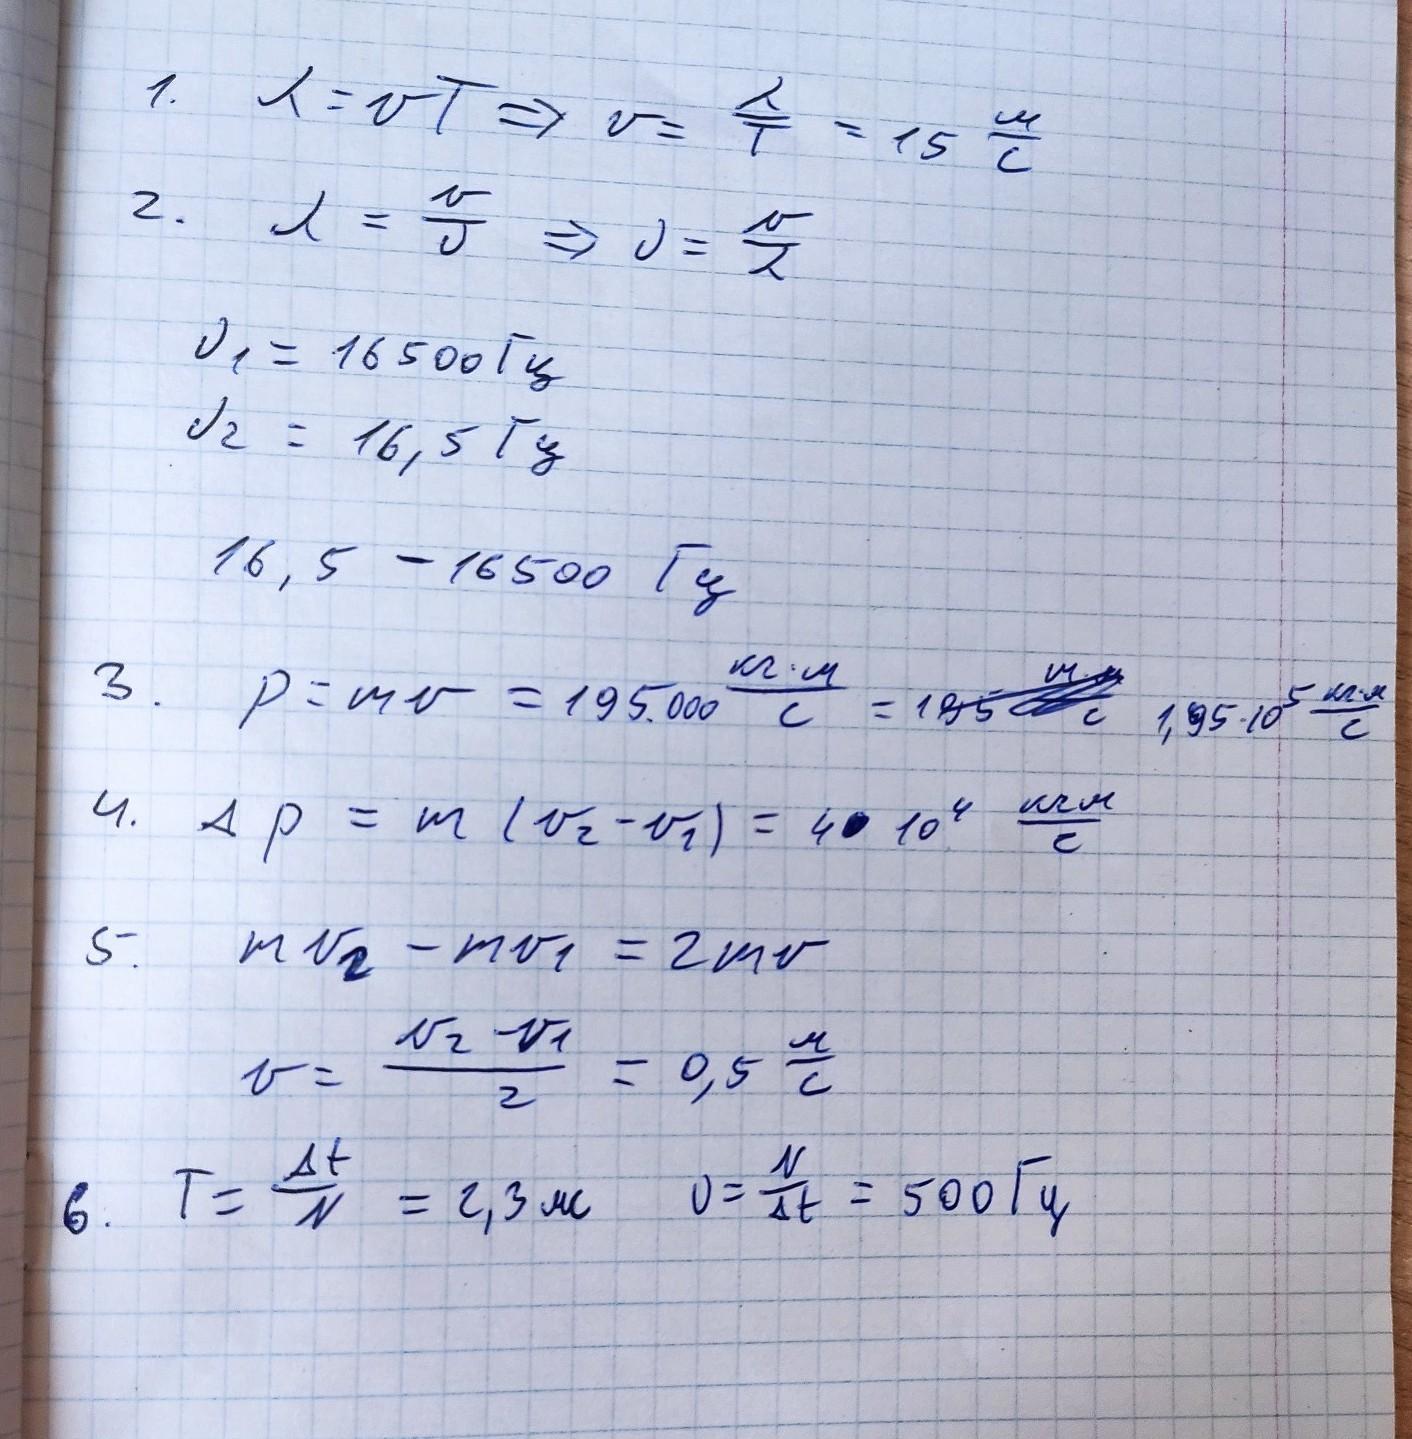 1. λ = vT ⇒ v = λ/T = 15 м/с
2. λ = v/ν ⇒ ν = v/λ
ν₁ = 16500 Гц
ν₂ = 16,5 Гц
16,5 – 16500 Гц
3. p = mv = 195.000 кг·м/с = 1,95·10⁵ кг·м/с
4. Δp = m (v₂ - v₁) = 4 · 10⁴ кг·м/с
5. mv₂ - mv₁ = 2mv
v = (v₂ - v₁)/2 = 0,5 м/с
6. T = Δt/N = 2,3 мс ν = N/Δt = 500 Гц